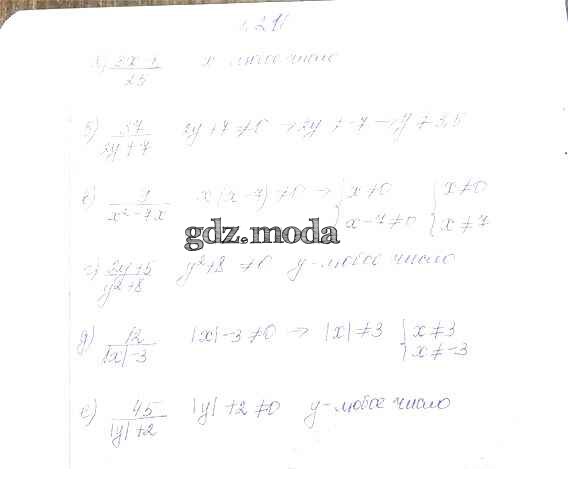 а) 3x - 1 / 25 x - любое число
б) 37 / 2y + 7 2y + 7 ≠ 0 → 2y ≠ -7 → y ≠ 3,5
в) 7 / x² - 7x x(x - 7) ≠ 0 → { x ≠ 0 { x ≠ 0
x - 7 ≠ 0 x ≠ 7
gdz.moda
г) 2y + 5 / y² + 8 y² + 8 ≠ 0 y - любое число
д) 12 / |x| - 3 |x| - 3 ≠ 0 → |x| ≠ 3 { x ≠ 3
x ≠ -3
е) 45 / |y| + 2 |y| + 2 ≠ 0 y - любое число